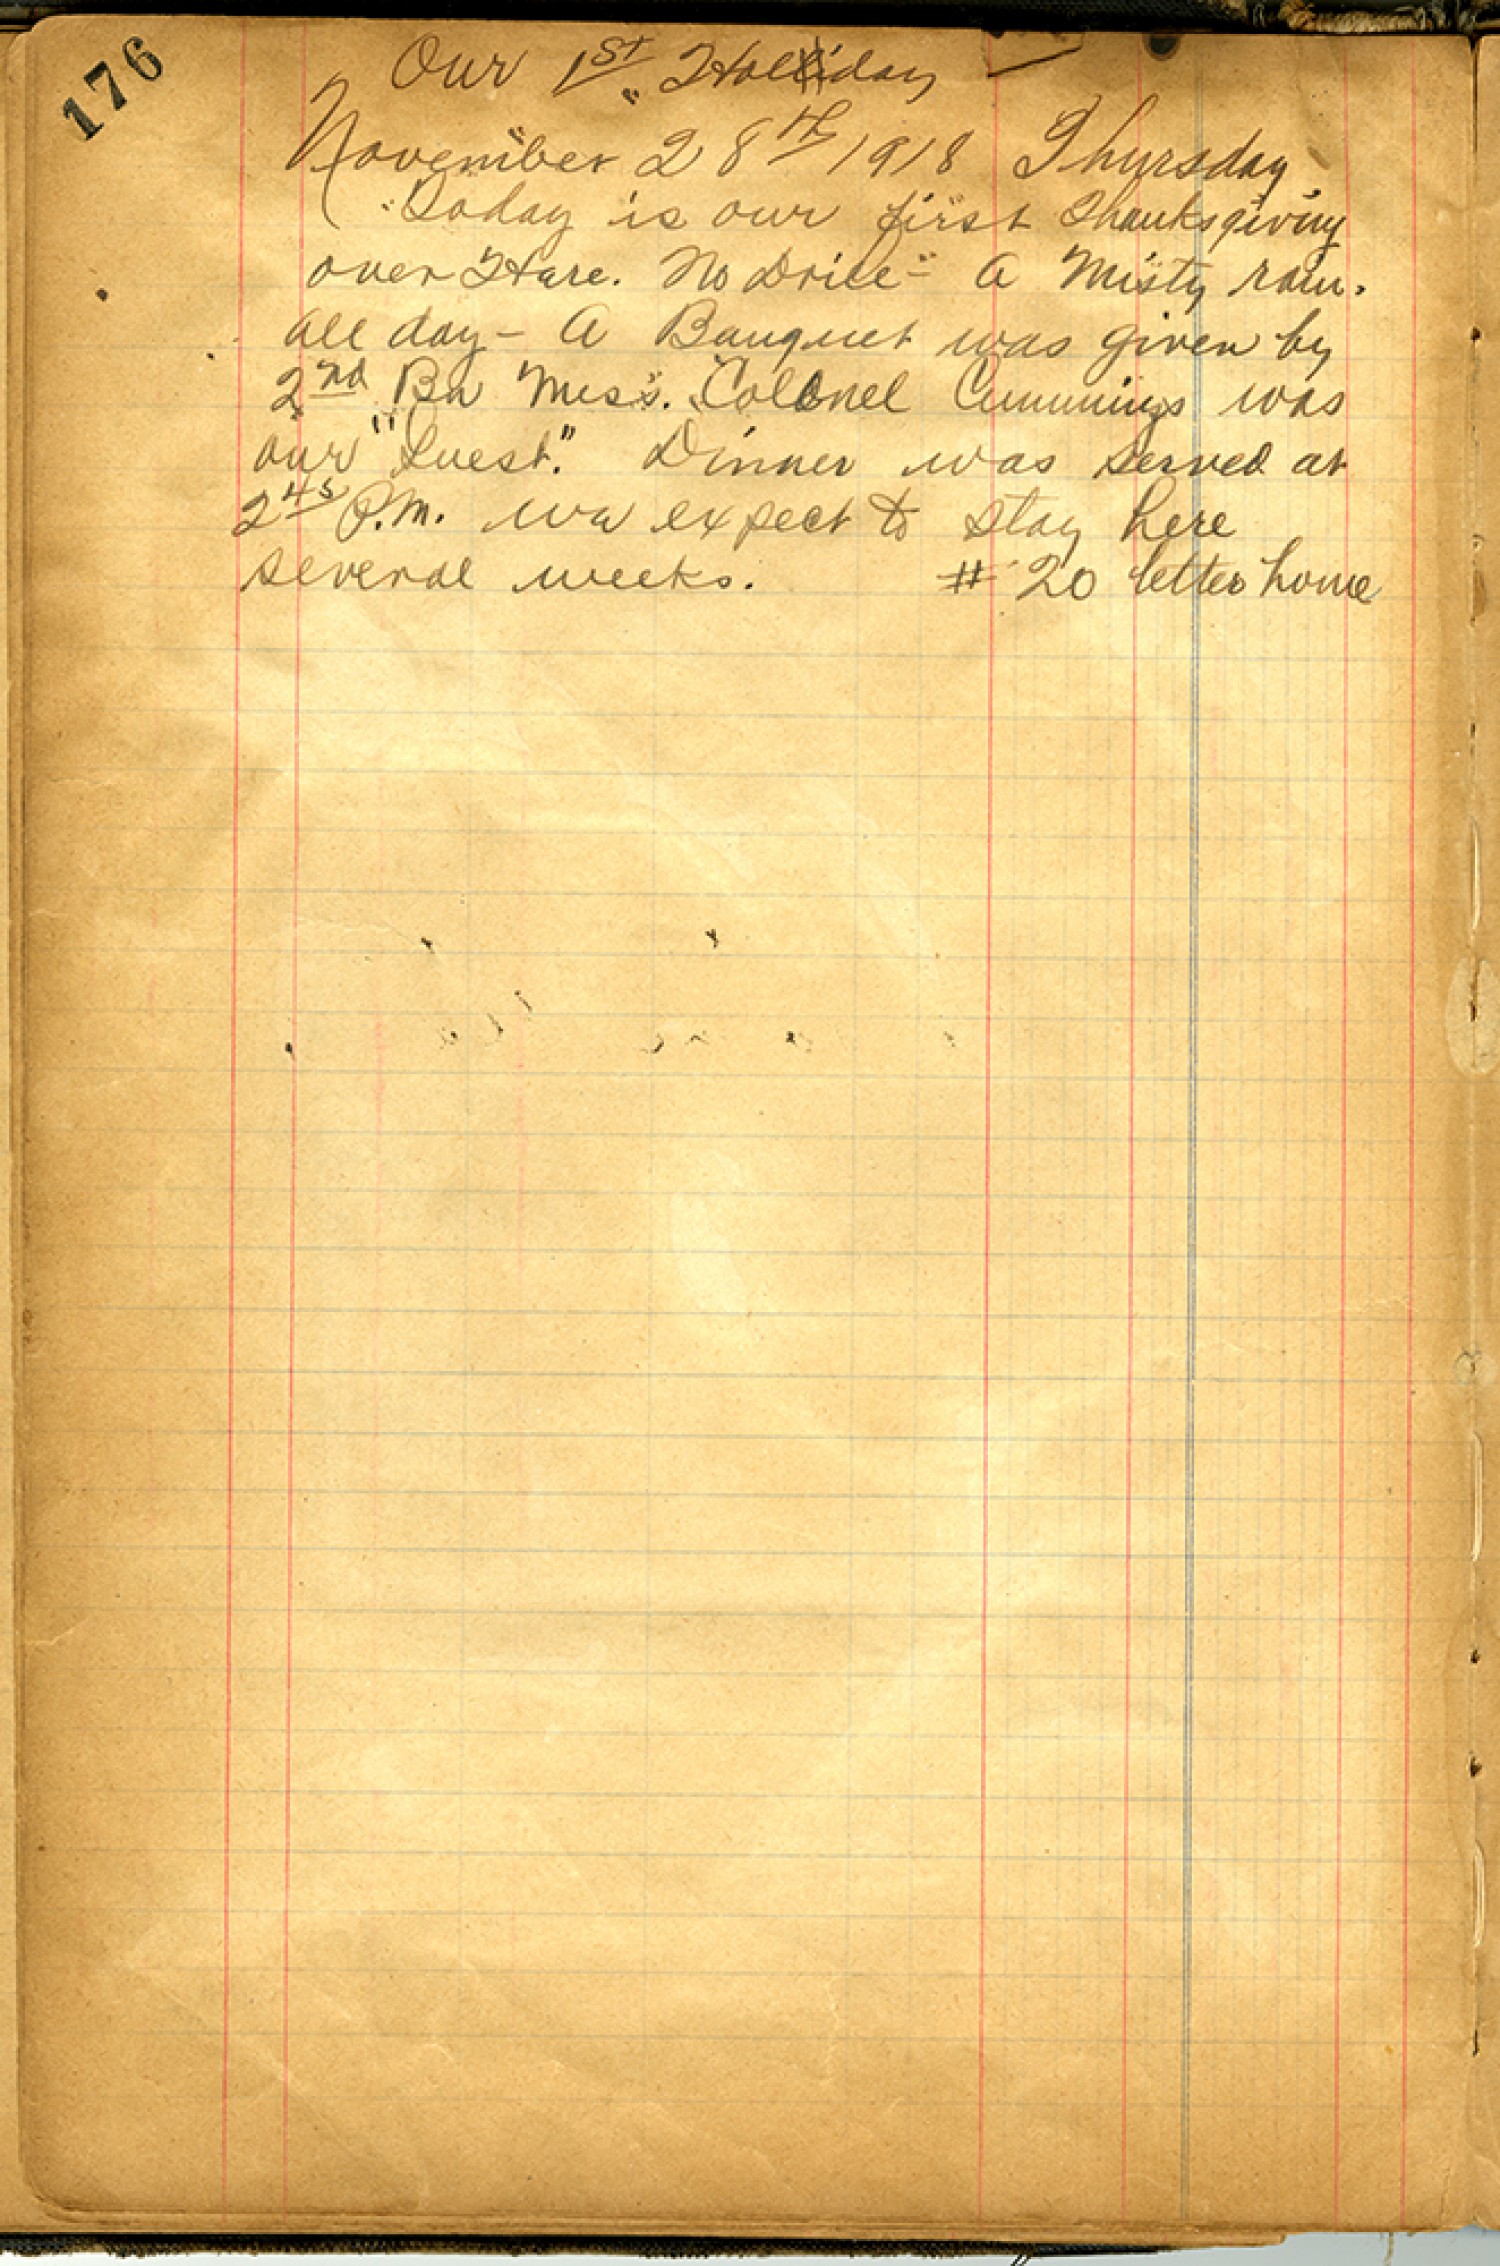 176
Our 1st Holiday
November 28th 1918 Thursday
Today is our first Thanksgiving
over Hare. No Drill - A Misty rain.
all day - A Banquet was given by
2nd Bn Mess. Colonel Cummings was
our "Guest." Dinner was served at
2 45 P.M. we expect to stay here
several weeks. # 20 letter home